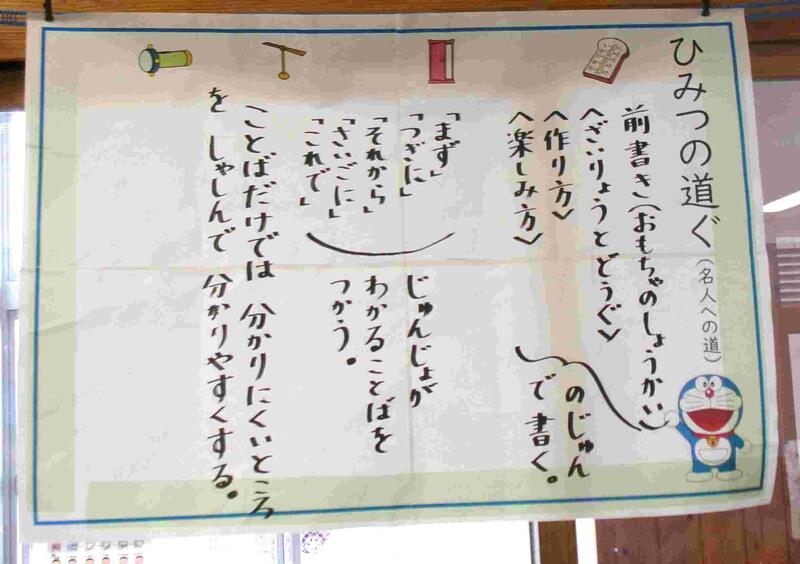 ひみつの道ぐ(名人への道)
前書き(おもちゃのしょうかい)
〈ざいりょうとどうぐ〉
〈作り方〉
〈楽しみ方〉
のじゅん
で書く。
「まず」
「つぎに」
「それから」
「さいごに」
「これで」
じゅんじょが
わかることばを
つかう。
ことばだけでは 分かりにくいところ
を しゃしんで 分かりやすくする。